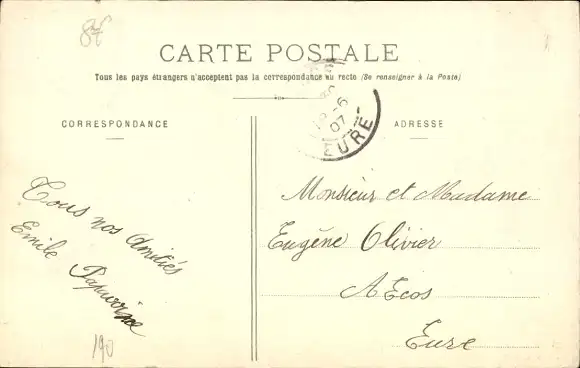 87
CARTE POSTALE
Tous les pays étrangers n'acceptent pas la correspondance au recto (Se renseigner à la Poste)
-6
07
EURE
CORRESPONDANCE
ADRESSE
Tous nos Amitiés
Emile
Monsieur et Madame
Eugène Olivier
A Ecos
Eure
190